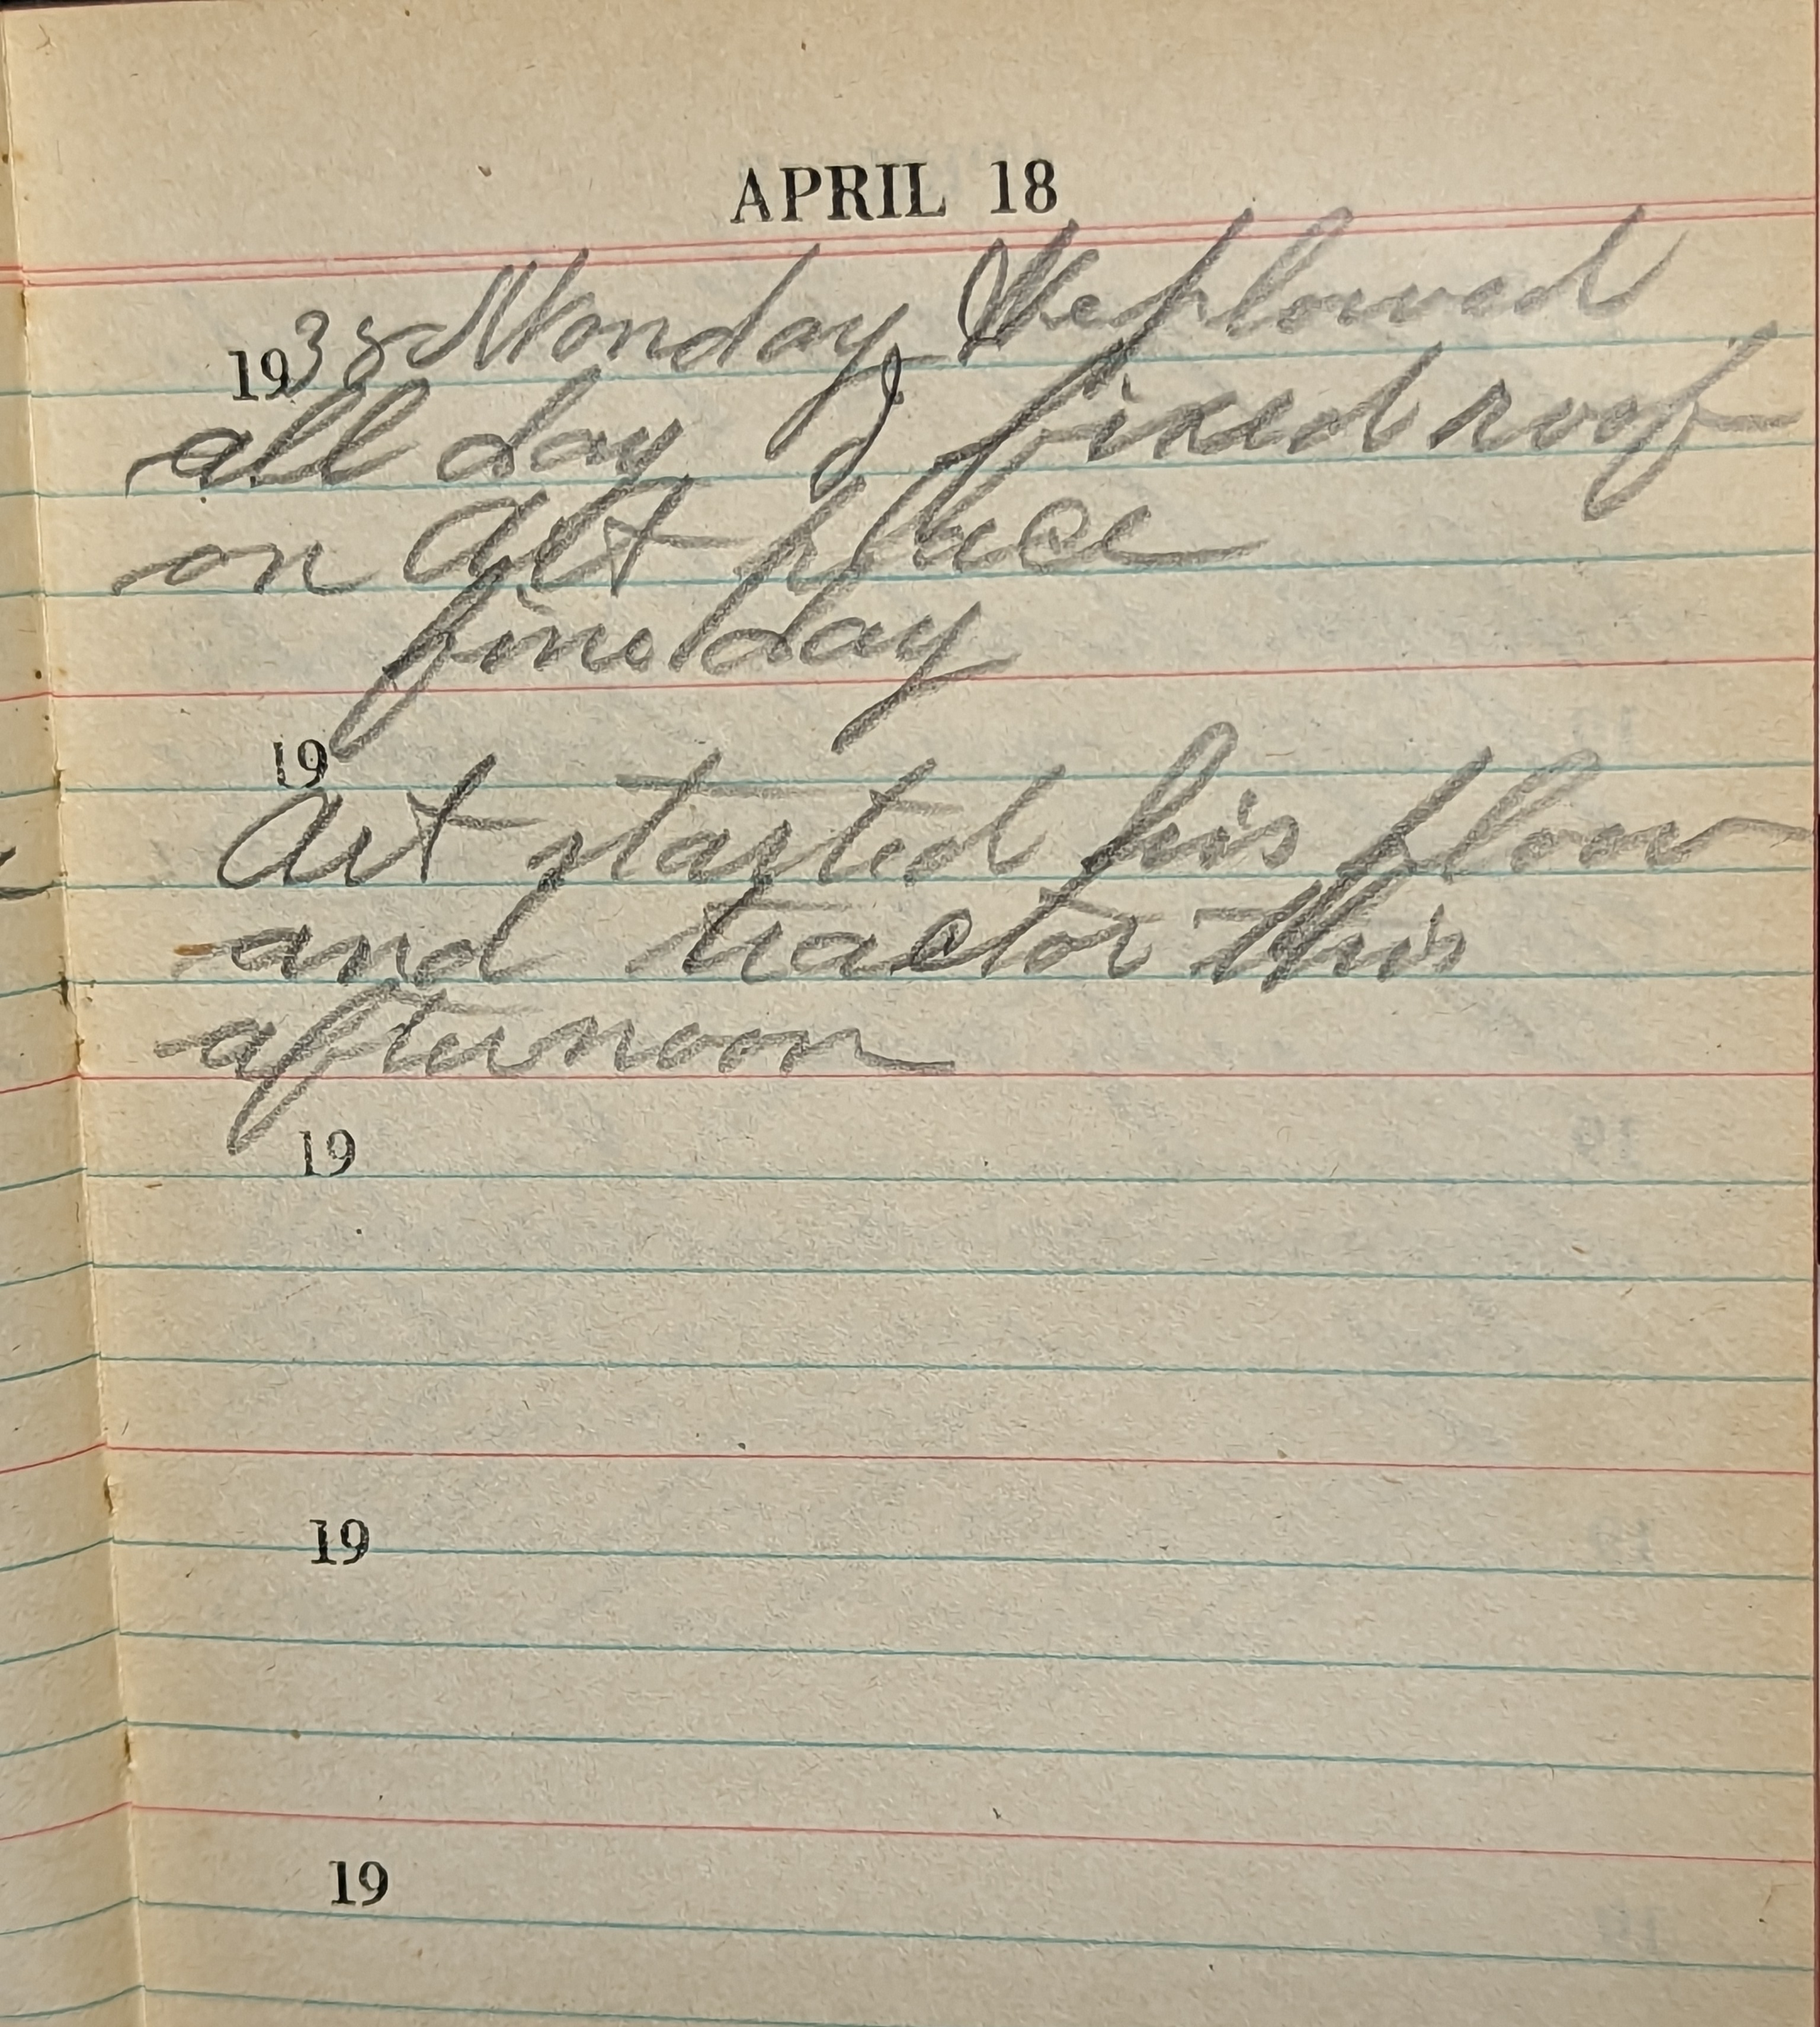 APRIL 18
1938 Monday We plowed
all day I fixed roof
on Art place
fine day
19
Art started his plow
and tractor this
afternoon
19
19
19